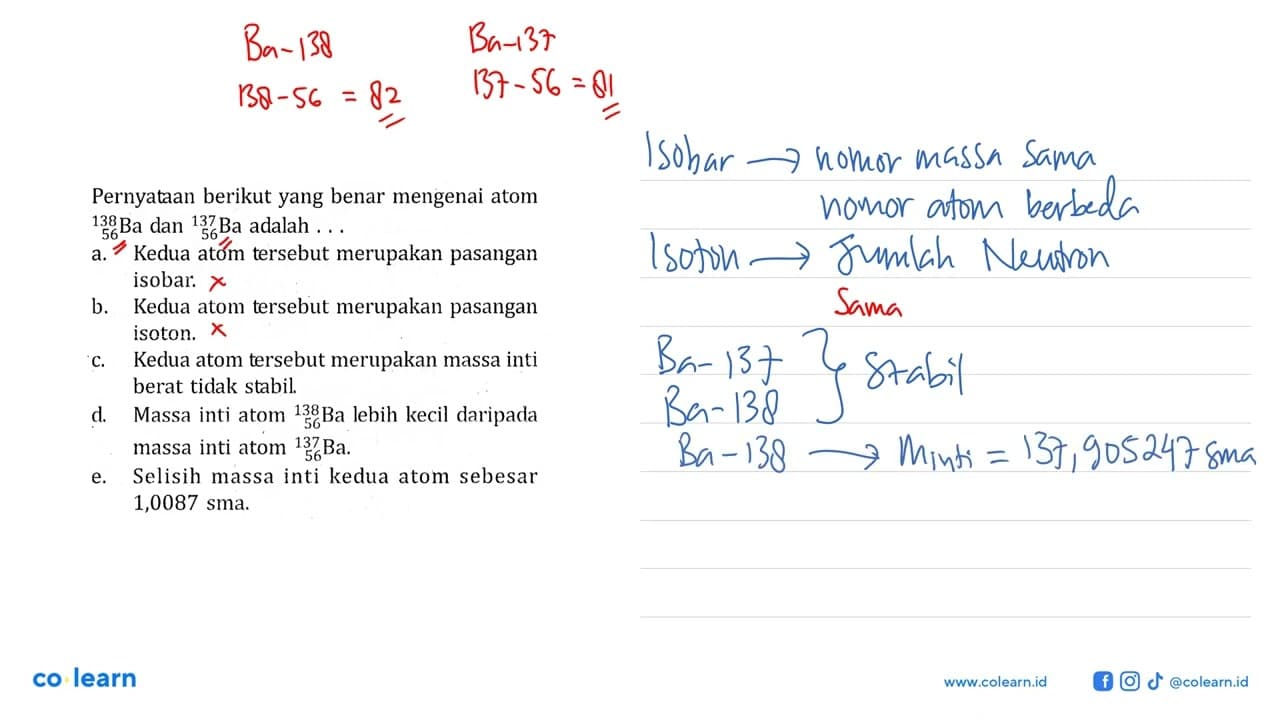 Ba-138
138-56 = 82
Ba-137
137-56 = 81
Pernyataan berikut yang benar mengenai atom
¹³⁸₅₆Ba dan ¹³⁷₅₆Ba adalah . . .
a. Kedua atom tersebut merupakan pasangan
isobar. x
b. Kedua atom tersebut merupakan pasangan
isoton. x
c. Kedua atom tersebut merupakan massa inti
berat tidak stabil.
d. Massa inti atom ¹³⁸₅₆Ba lebih kecil daripada
massa inti atom ¹³⁷₅₆Ba.
e. Selisih massa inti kedua atom sebesar
1,0087 sma.
Isobar → nomor massa sama
nomor atom berbeda
Isoton → Jumlah Neutron
Sama
Ba-137
Ba-138
} Stabil
Ba-138 → Minti = 137,905247 sma
co learn
www.colearn.id
@colearn.id